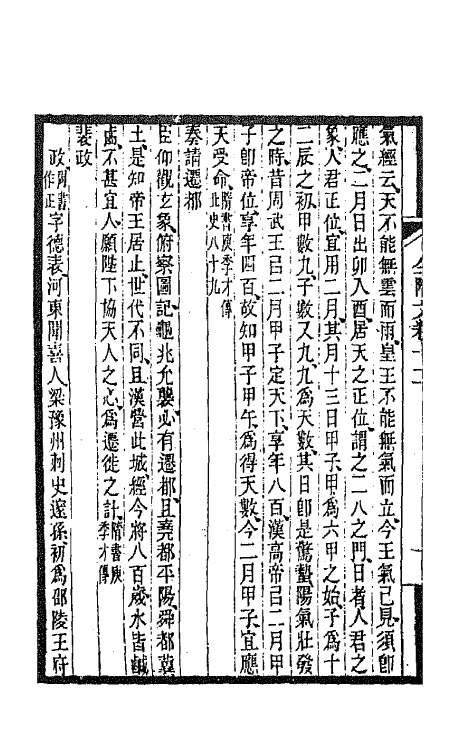 全隋文卷十二
氣經云、天不能無雲而雨、皇王不能無氣而立、今王氣已見、須卽
應之、二月日出卯入酉、居天之正位、謂之二八之門、日者人君之
象、人君正位、宜用二月、其月十三日甲子、甲爲六甲之始、子爲十
二辰之初、甲數九、子數又九、九爲天數、其日卽是驚蟄、陽氣壯發
之時、昔周武王㠯二月甲子定天下、享年八百、漢高帝㠯二月甲
子卽帝位、享年四百、故知甲子甲午爲得天數、今二月甲子、宜應
天受命、隋書庾季才傳北史八十九
奏請遷都
臣仰觀玄象、俯察圖記、龜兆允襲、必有遷都、且堯都平陽、舜都冀
土、是知帝王居止、世代不同、且漢營此城、經今將八百歲、水皆鹹
鹵、不甚宜人、願陛下協天人之心、爲遷徙之計、隋書庾季才傳
裴政
政周書作正字德表、河東聞喜人、梁豫州刺史邃孫、初爲邵陵王府